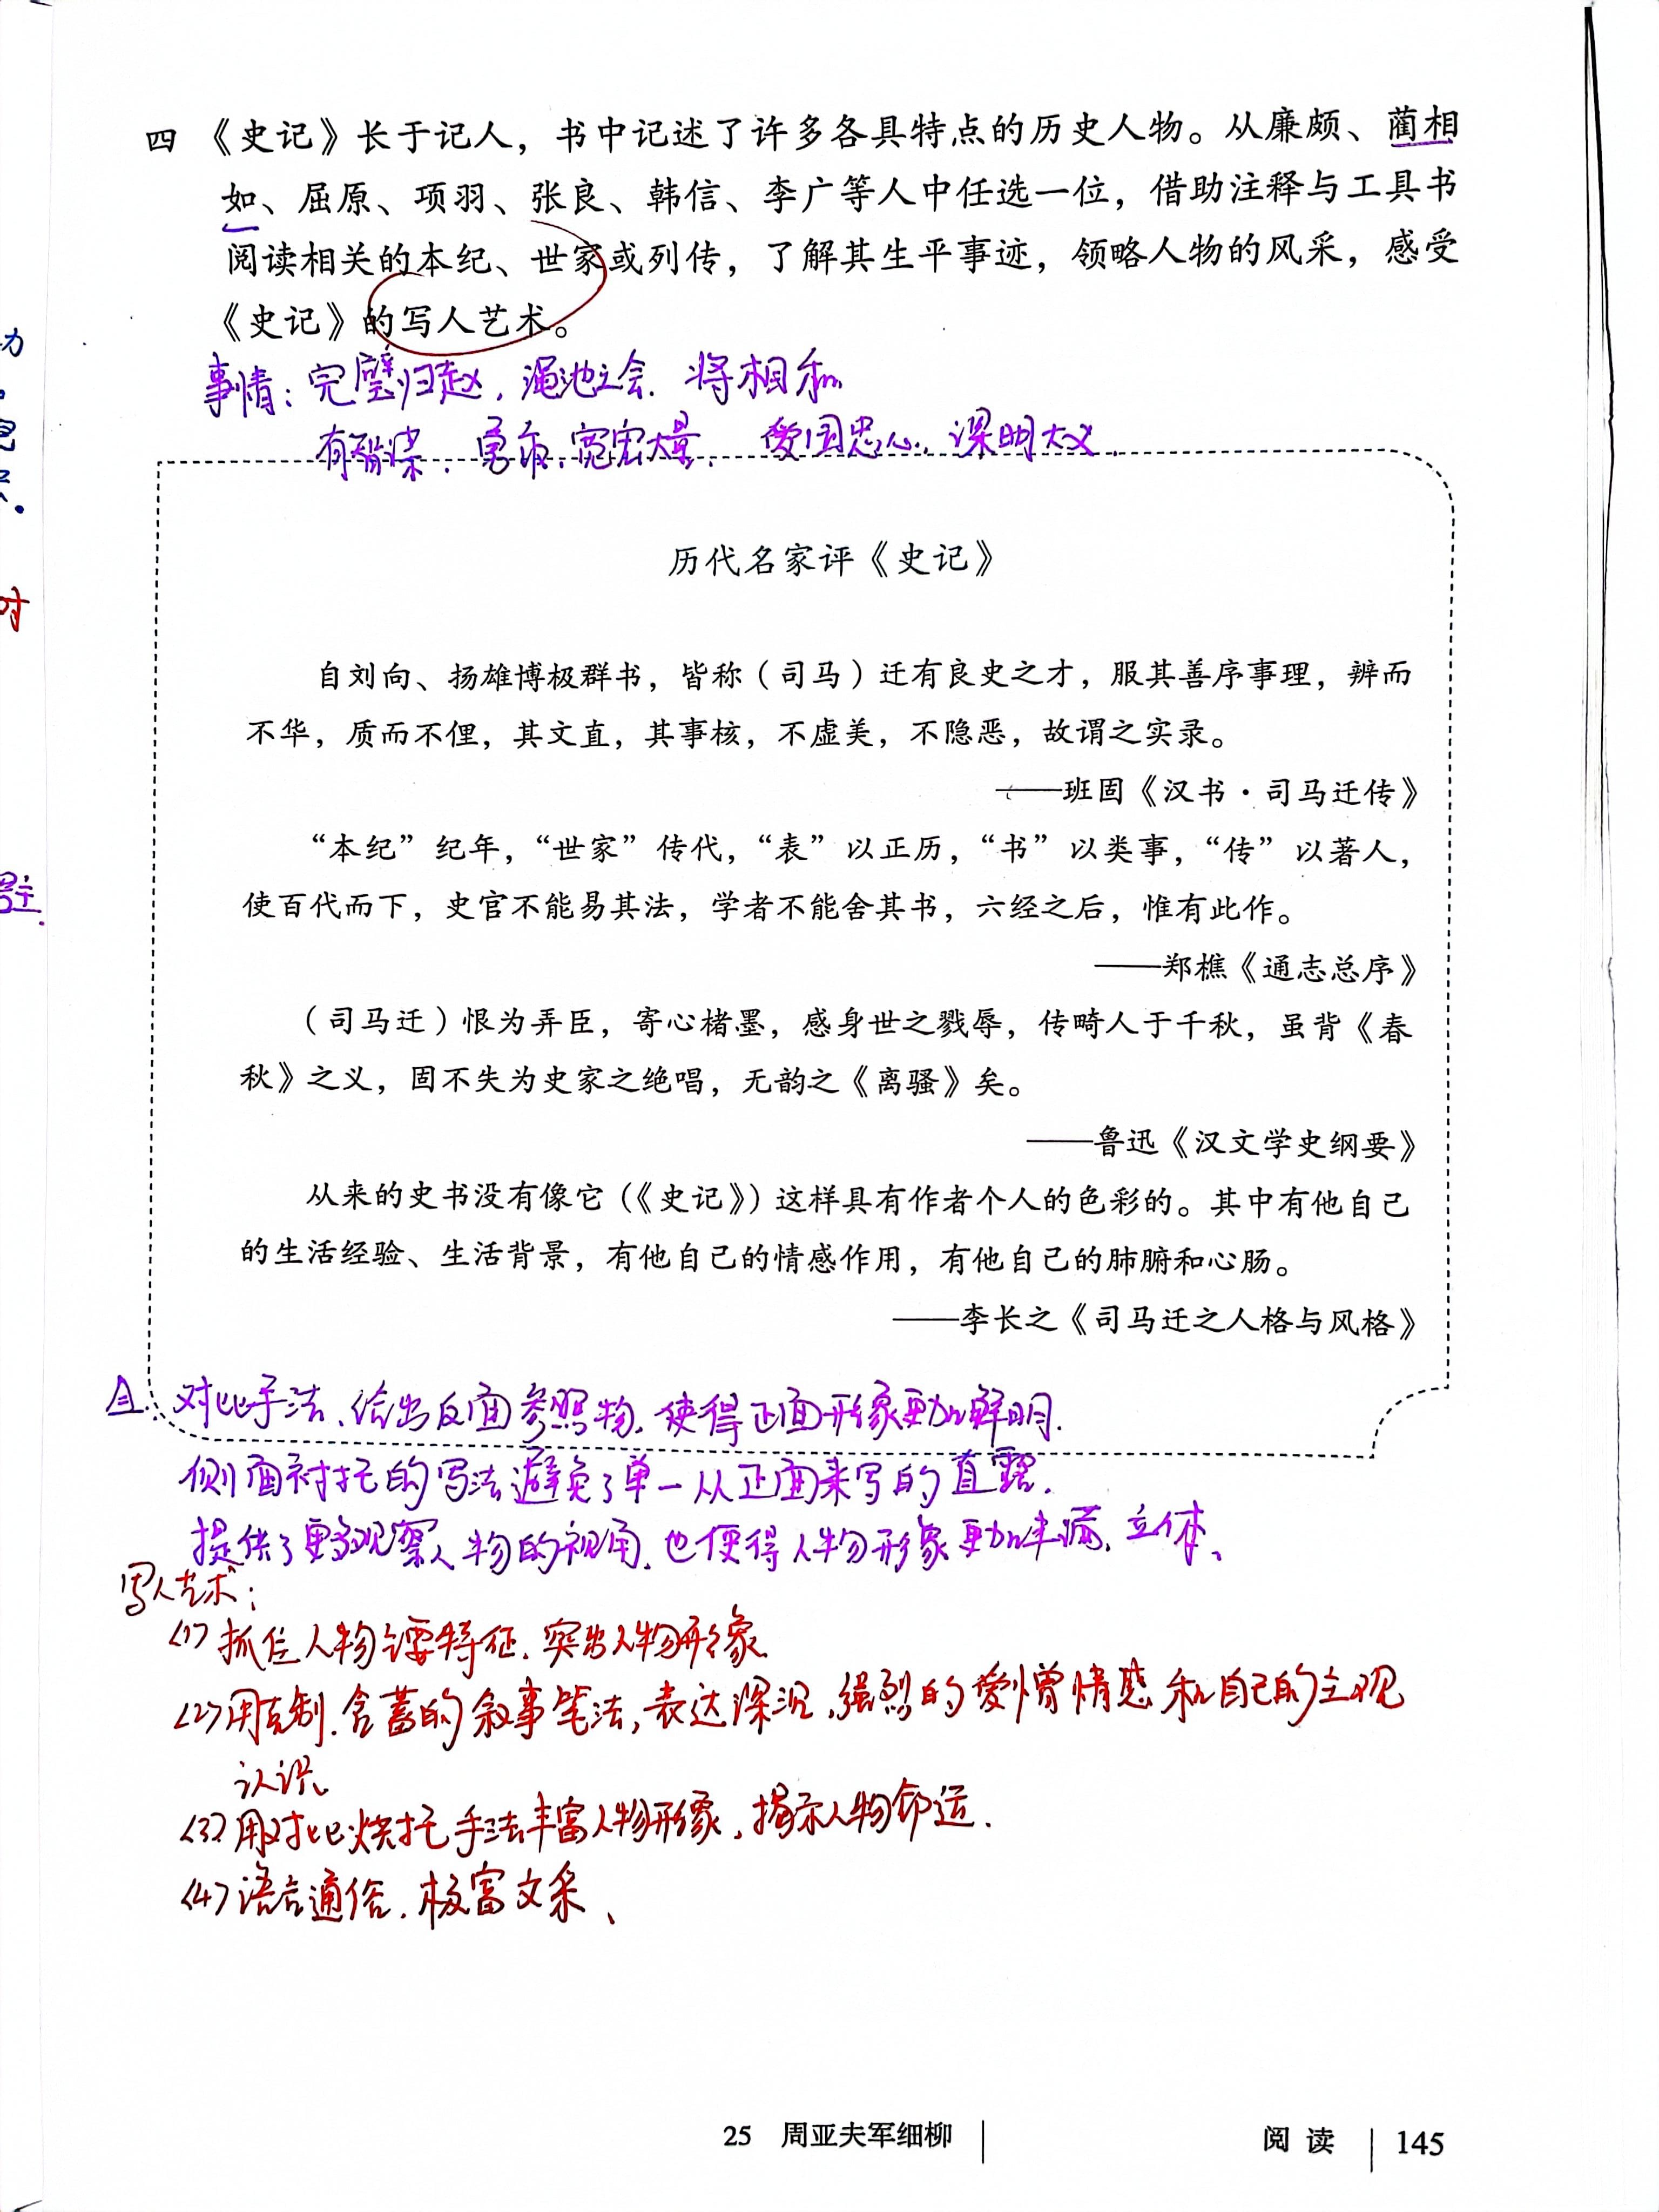 四 《史记》长于记人，书中记述了许多各具特点的历史人物。从廉颇、蔺相
如、屈原、项羽、张良、韩信、李广等人中任选一位，借助注释与工具书
阅读相关的本纪、世家或列传，了解其生平事迹，领略人物的风采，感受
《史记》的写人艺术。
事情：完璧归赵，渑池之会．将相和
有智谋．勇敢．宽宏大量．爱国忠心．深明大义．
历代名家评《史记》
自刘向、扬雄博极群书，皆称（司马）迁有良史之才，服其善序事理，辨而
不华，质而不俚，其文直，其事核，不虚美，不隐恶，故谓之实录。
——班固《汉书·司马迁传》
“本纪”纪年，“世家”传代，“表”以正历，“书”以类事，“传”以著人，
使百代而下，史官不能易其法，学者不能舍其书，六经之后，惟有此作。
——郑樵《通志总序》
（司马迁）恨为弄臣，寄心楮墨，感身世之戮辱，传畸人于千秋，虽背《春
秋》之义，固不失为史家之绝唱，无韵之《离骚》矣。
——鲁迅《汉文学史纲要》
从来的史书没有像它（《史记》）这样具有作者个人的色彩的。其中有他自己
的生活经验、生活背景，有他自己的情感作用，有他自己的肺腑和心肠。
——李长之《司马迁之人格与风格》
对比手法、给出反面参照物，使得正面形象更加鲜明．
侧面衬托的写法避免了单一从正面来写的直露．
提供了更多观察人物的视角，也使得人物形象更加丰满、立体、
写人艺术：
(1)抓住人物主要特征．突出人物形象
(2)用克制．含蓄的叙事笔法，表达深沉，强烈的爱憎情感和自己的主观
认识、
(3)用对比烘托手法丰富人物形象，揭示人物命运．
(4)语言通俗．极富文采、
25 周亚夫军细柳
阅读 145